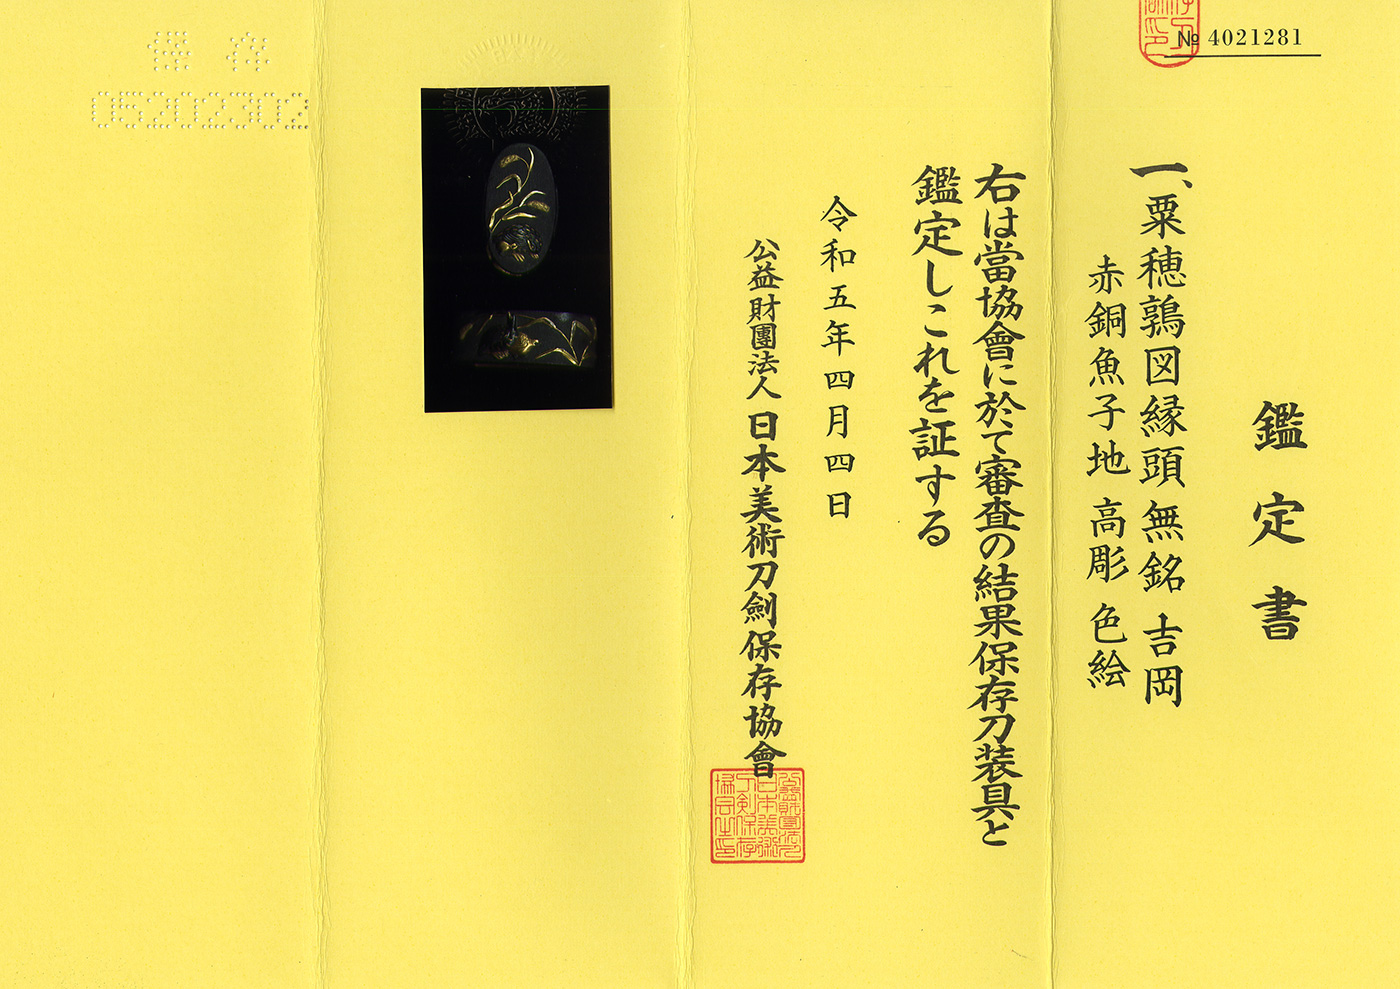 № 4021281
鑑定書
一、粟穂鶉図縁頭 無銘 吉岡
赤銅魚子地 高彫 色絵
右は當協會に於て審査の結果保存刀装具と
鑑定しこれを証する
令和五年四月四日
公益財團法人 日本美術刀劍保存協會
保存
05202302